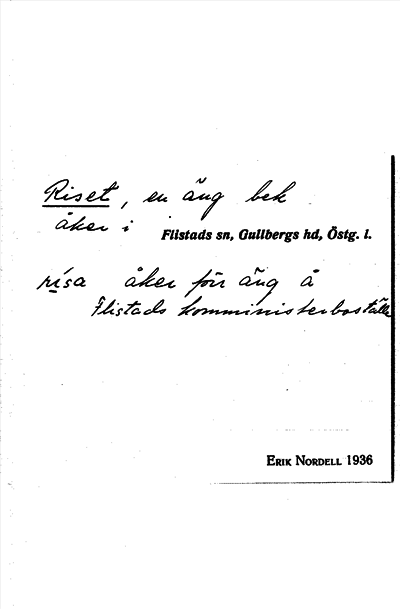 Riset, en äng bek
åker i Flistads sn, Gullbergs hd, Östg. l.
rísa åker förr äng å
Flistads komministerboställe
ERIK NORDELL 1936